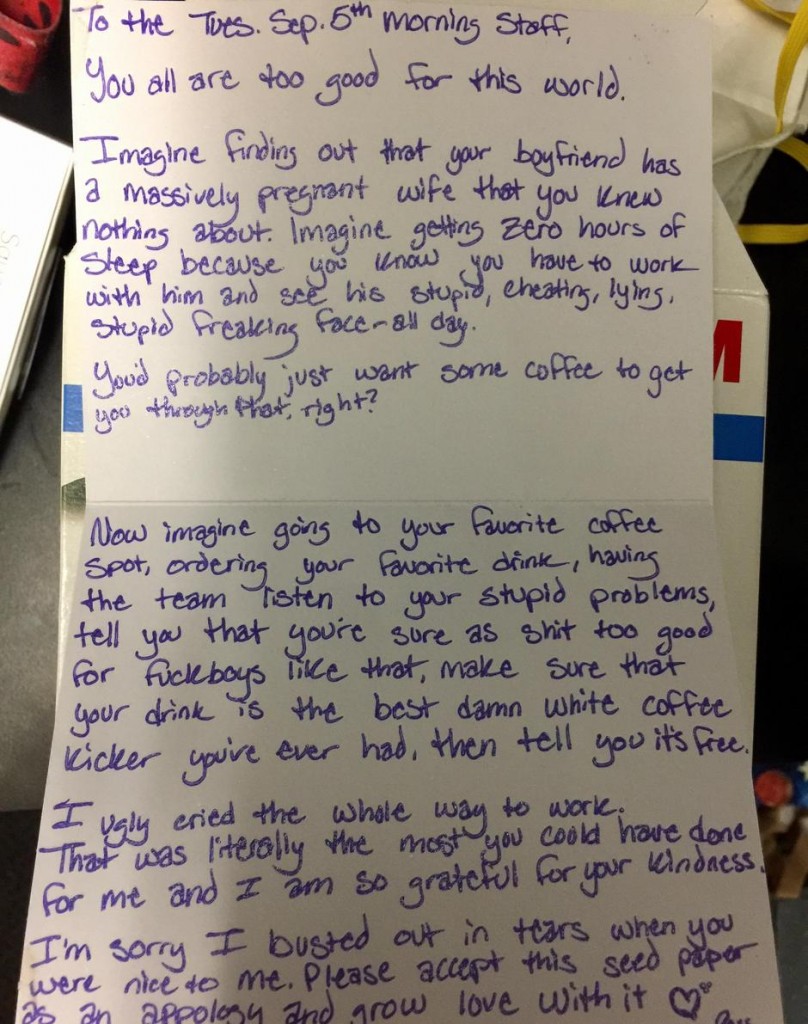 To the Tues. Sep. 5th morning Staff,
You all are too good for this world.
Imagine finding out that your boyfriend has
a massively pregnant wife that you knew
nothing about. Imagine getting zero hours of
sleep because you know you have to work
with him and see his stupid, cheating, lying,
stupid freaking face-all day.
You'd probably just want some coffee to get
you through that, right?
M
Now imagine going to your favorite coffee
spot, ordering your favorite drink, having
the team listen to your stupid problems,
tell you that you're sure as shit too good
for fuckboys like that, make sure that
your drink is the best damn white coffee
kicker you've ever had, then tell you it's free.
I ugly cried the whole way to work.
That was literally the most you could have done
for me and I am so grateful for your kindness.
I'm sorry I busted out in tears when you
were nice to me. Please accept this seed paper
as an appology and grow love with it